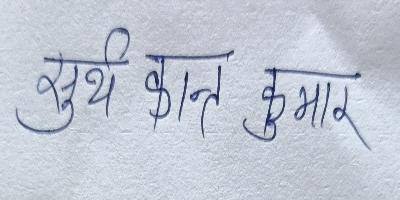 सुर्य कान्त कुमार